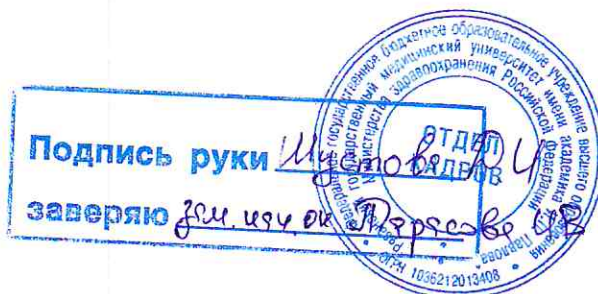 Подпись руки
заверяю зам. нач. ок Тарасова
ОТДЕЛ
КАДРОВ
государственное бюджетное образовательное учреждение высшего
государственный медицинский университет имени академика
Павлова
Министерство здравоохранения Российской Федерации
ОГРН 1036212013408